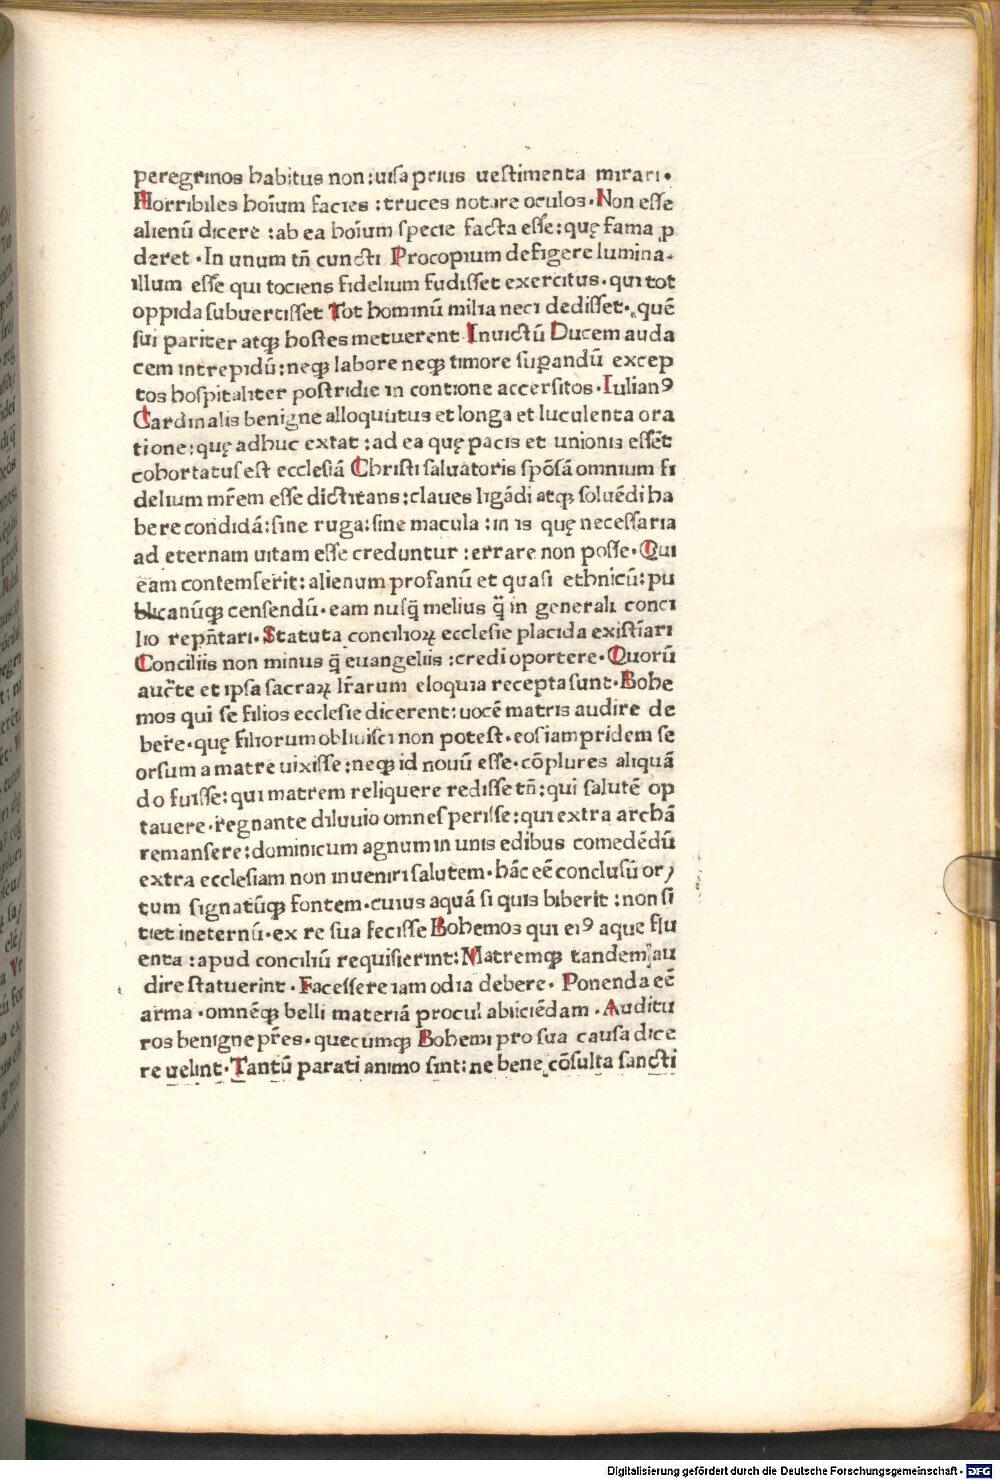 peregrinos habitus non:uiſa prius ueſtimenta mirari.
Horribiles hoīum facies :truces notare oculos.Non eſſe
alienū dicere :ab ea hoīum ſpecie facta eſſe:quę fama ꝓ
deret .In unum tñ cuncti Procopium defigere lumina.
illum eſſe qui tociens fidelium fudiſſet exercitus.qui tot
oppida ſubuertiſſet Tot hominū milia neci dediſſet.quē
ſui pariter atqꝫ hoſtes metuerent Inuictū Ducem auda
cem intrepidū:neqꝫ labore neqꝫ timore ſuꝑandū excep
tos hoſpitaliter poſtridie in contione accerſitos.Iulianꝰ
Cardinalis benigne alloquutus et longa et luculenta ora
tione:quę adhuc extat :ad ea quę pacis et unionis eſſēt
cohortatuſ eſt eccleſiā Chriſti ſaluatoris ſpōſā omnium fi
delium mr̄em eſſe dictitans:claues ligādi atqꝫ ſoluēdi ha
bere condidā:ſine ruga:ſine macula :in is quę neceſſaria
ad eternam uitam eſſe creduntur :errare non poſſe.Qui
eam contemſerit:alienum profanū et quaſi ethnicū:pu
blicanūqꝫ cenſendū.eam nuſq̄ melius q̄ in generali conci
lio repn̄tari.Statuta conciliоꝝ eccleſie placida exiſtīari
Conciliis non minus q̄ euangeliis :credi oportere.Quorū
auctͤe et ipſa ſacraꝝ lr̄arum eloquia recepta ſunt.Bohe
mos qui ſe filios eccleſie dicerent:uocē matris audire de
bere.quę filiorum obliuiſci non poteſt.eoſ iam pridem ſe
orſum a matre uixiſſe:neqꝫ id nouū eſſe.cōplures aliquā
do fuiſſe:qui matrem reliquere rediſſe tñ:qui ſalutē op
tauere.regnante diluuio omneſ periſſe:qui extra archā
remanſere:dominicum agnum in unis edibus comedēdū
extra eccleſiam non inueniri ſalutem.hāc eē concluſū or/
tum ſignatūqꝫ fontem.cuius aquā ſi quis biberit :non ſi
tiet ineternū.ex re ſua feciſſe Bohemos qui eiꝰ aque flu
enta :apud conciliū requiſierint:Matremqꝫ tandem au
dire ſtatuerint .Faceſſere iam odia debere. Ponenda eē
arma .omnēqꝫ belli materiā procul abiiciēdam .Auditu
ros benigne pr̄es.quecumqꝫ Bohemi pro sua cauſa dice
re uelint.Tantū parati animo ſint:ne bene cōſulta ſancti
Digitalisierung gefördert durch die Deutsche Forschungsgemeinschaft - DFG